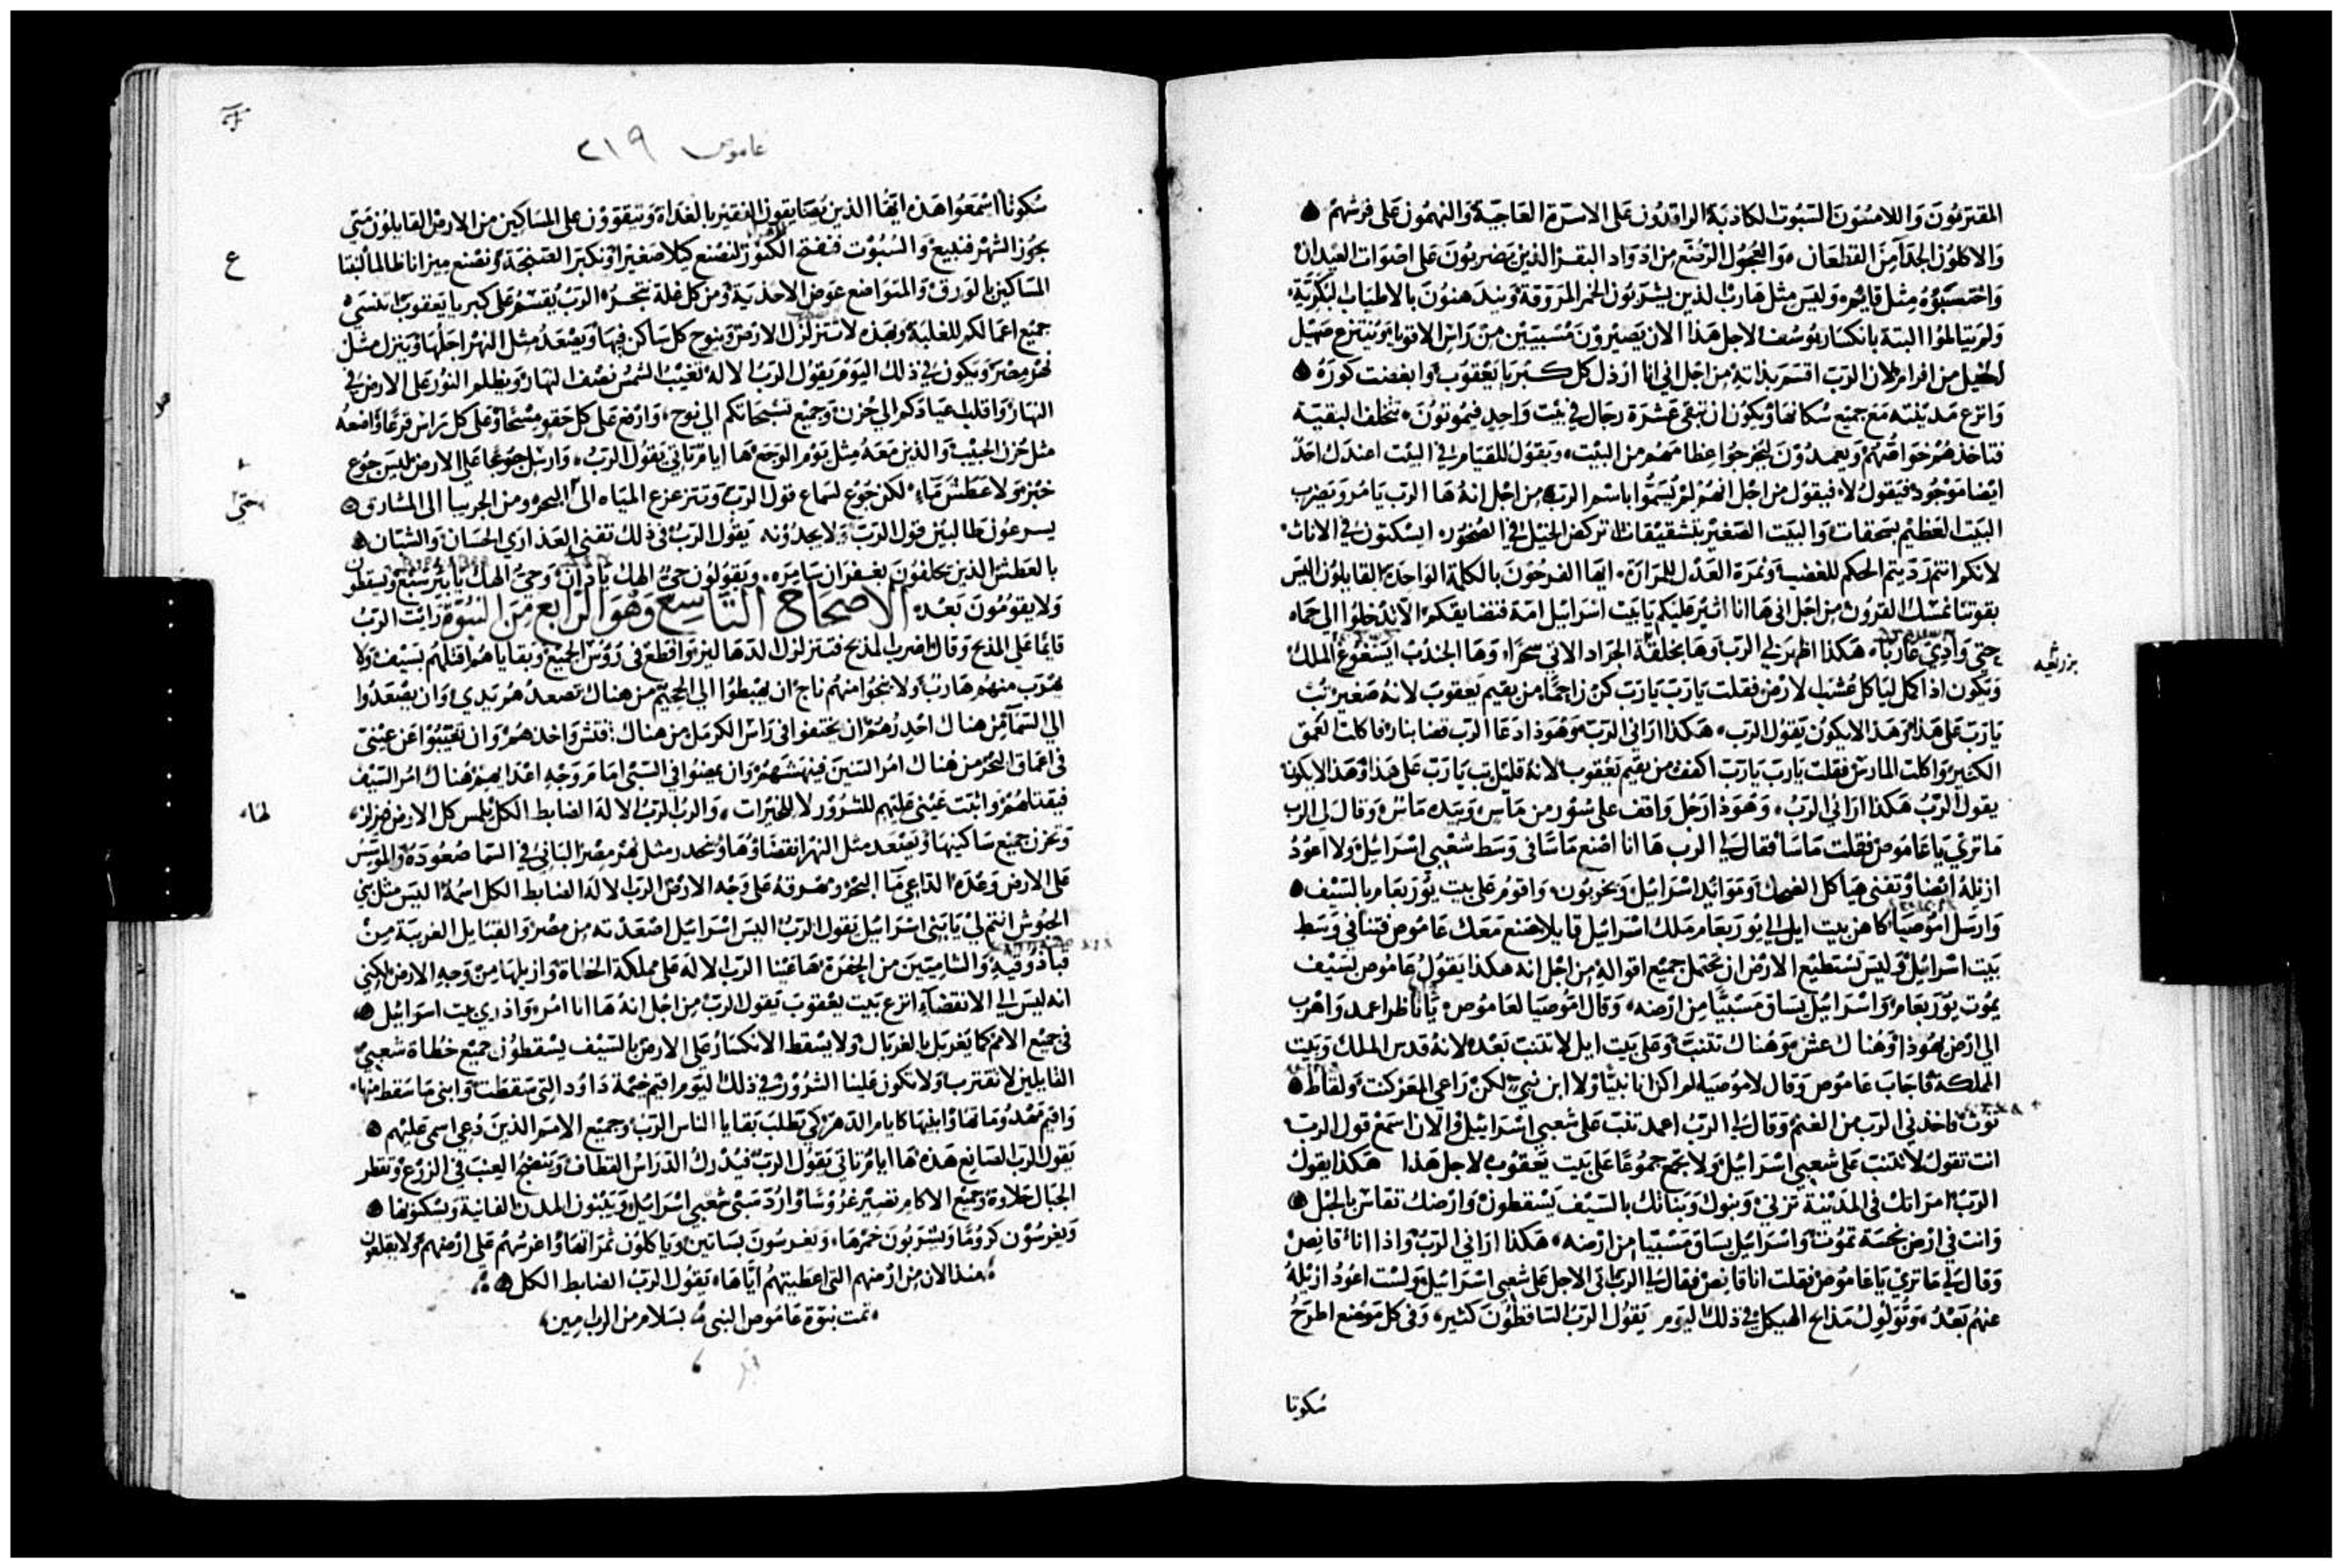 المقتربون واللامسون السبوت الكاذبة الراقدون على الاسرة العاجية والنهمون على فرشهم
والاكلون الجدآ من القطعان والعجول الرضع من ادواد البقر الذين يضربون على اصوات العيدان
واحتسبوه مثل قايم وليس مثل هارب الذين يشربون الخمر المروقة ويندهنون بالاطياب البكرية
ولم يتالموا البتة بانكسار يوسف لاجل هذا الان يصيرون مسبيين من راس الاقويا وينتزع صهيل
الخيل من افرام لان الرب اقسم بذاته من اجل اني انا ارذل كل كبريا يعقوب وابغضت كوره
وانزع مدينته مع جميع سكانها ويكون ان تبقى عشرة رجال في بيت واحد فيموتون تتخلف البقية
فتاخذهم خواصهم ويعمدون ليخرجوا عظامهم من البيت ويقول للقيام في البيت اعندك احد
ايضا موجود فيقول لا فيقول من اجل انهم لم يسموا باسم الرب من اجل انه ها الرب يامر ويضرب
البيت العظيم بسحقات والبيت الصغير بتشقيقات اتركض الخيل في الصخور ايسكتون في الاناث
لانكم انتم رديتم الحكم للغضب وثمرة العدل للمرارة ايها الفرحون بالكلمة الواحدة القايلون اليس
بقوتنا نمسك القرون من اجل اني ها انا اثير عليكم يا بيت اسرائيل امة فتضايقكم الا تدخلوا الى حماه
حتى وادي عاربا هكذا اظهر لي الرب وها بخلفة الجراد الاتي سحرا وها الجندب ايسغوغ الملك
ويكون اذا اكل لياكل عشب الارض فقلت يا رب يا رب كن راحما من يقيم يعقوب لانه صغير تب
يا رب على هذا وهذا لا يكون يقول الرب هكذا اراني الرب وهوذا دعا الرب قضا بنار فاكلت العمق
الكثير واكلت المارس فقلت يا رب يا رب اكفف من يقيم يعقوب لانه قليل تب يا رب على هذا وهذا لا يكون
يقول الرب هكذا اراني الرب وهوذا رجل واقف على سور من ماس وبيده ماس وقال لي الرب
ما تري يا عاموص فقلت ماسا فقال لي الرب ها انا اضع ماسا في وسط شعبي اسرائيل ولا اعود
ازيله ايضا وتفنى هياكل الضحك وموائد اسرائيل ويخربون واقوم على بيت يوربعام بالسيف
وارسل اموصيا كاهن بيت ايل الي يوربعام ملك اسرائيل قايلا صنع معك عاموص فتنا في وسط
بيت اسرائيل وليس تستطيع الارض ان تحتمل جميع اقواله من اجل انه هكذا يقول عاموص بسيف
يموت يوربعام واسرائيل يساق مسبيا من ارضه وقال اموصيا لعاموص يا ناظر اعمد واهرب
الى ارض يهوذا وهناك عش وهناك تتنبا وعلى بيت ايل لا تتنبا بعد لانه قدس الملك وبيت
المملكة فاجاب عاموص وقال لاموصيا لم اكن انا نبيا ولا ابن نبي لكن راعي المعز كنت ولقاط
توت فاخذني الرب من الغنم وقال لي الرب اعمد تنبا على شعبي اسرائيل والان اسمع قول الرب
انت تقول لا تتنبا على شعبي اسرائيل ولا تجمع جموعا على بيت يعقوب لاجل هذا هكذا يقول
الرب امراتك في المدينة تزني وبنوك وبناتك بالسيف يسقطون وارضك تقاس بالحبل
وانت في ارض نجسة تموت واسرائيل يساق مسبيا من ارضه هكذا اراني الرب واذا اناء قانص
وقال لي ما تري يا عاموص فقلت انا قانص فقال لي الرب اتى الاجل على شعبي اسرائيل ولست اعود ازيله
عنهم بعد وتولول مدايح الهيكل في ذلك اليوم يقول الرب الساقطون كثير وفي كل موضع اطرح
سكوتا
بزرثعه
عاموص ٢١٩
سكوتا اسمعوا هذه ايها الذين يضايقون الفقير بالغداة ويتقوون على المساكين من الارض القايلون متى
يجوز الشهر فنبيع والسبوت فنفتح الكنوز لنصنع كيلا صغيرا ونكبر الصنجة ونصنع ميزانا ظالما لنقتنا
المساكين بالورق والمتواضع عوض الاحذية ومن كل غلة نتجر الرب يقسم على كبريا يعقوب ان نسي
جميع اعمالكم للغلبة وبهذه لا تتزلزل الارض وينوح كل ساكن فيها ويصعد مثل النهر اجلها وينزل مثل
نهر مصر ويكون في ذلك اليوم يقول الرب الاله تغيب الشمس نصف النهار ويظلم النور على الارض في
النهار واقلب عيادكم الي حزن وجميع تسبحاتكم الى نوح وارفع على كل حقو مسحا وعلى كل راس قرعا واضعه
مثل حزن الحبيب والذين معه مثل يوم الوجع ها ايام تاتي يقول الرب وارسل جوعا على الارض ليس جوع
خبز ولا عطش ماء لكن جوع لسماع قول الرب وتتزعزع المياه الى البحر ومن الجربيا الى المشارق
يسرعون طالبين قول الرب ولا يجدونه يقول الرب في ذلك تفنى العذاري الحسان والشبان
بالعطش الذين يحلفون بغفران سامره ويقولون حي الهك يا دان وحي الهك يا بير سبع ويسقطون
ولا يقومون بعد الاصحاح التاسع وهو الرابع من النبوة رايت الرب
قايما على المذبح وقال اضرب المذبح فتتزلزل الدهاليز واقطع في روس الجميع وبقاياهم اقتلهم بسيف ولا
يهرب منهم هارب ولا ينجوا منهم ناج ان يهبطوا الي الجحيم من هناك تصعدهم يدي وان يصعدوا
الي السمآ من هناك احدرهم ان يختفوا في راس الكرمل من هناك افتش واخذهم وان تغيبوا عن عيني
في اعماق البحر من هناك امر التنين فينهشهم وان يمضوا في السبي امام وجه اعدايهم هناك امر السيف
فيقتلهم واثبت عيني عليهم للشرور لا للخيرات والرب الرب الاله الضابط الكل يلمس كل الارض فيزلزلها
وتحزن جميع ساكنيها ويصعد مثل النهر انقضاؤها وينحدر مثل نهر مصر الباني في السما صعوده والموسس
على الارض وعده الداعي ماء البحر ومهرقه على وجه الارض الرب الاله الضابط الكل اسمه اليس مثل بني
الحبوش انتم لي يا بني اسرائيل يقول الرب اليس اسرائيل اصعدته من مصر والقبايل الغريبة من
قباذوقيه والشاميين من الحفرة ها عينا الرب الاله على مملكة الخطاة وازيلها من وجه الارض لكني
انه ليس الي الانقضآء انزع بيت يعقوب يقول الرب من اجل انه ها انا امر واذري بيت اسرائيل
في جميع الامم كما يغربل بالغربال ولا يسقط الانكسار على الارض بالسيف يسقطون جميع خطاة شعبي
القايلين لا تقترب ولا تكون علينا الشرور في ذلك اليوم اقيم خيمة داود التي سقطت وابنى ما سقط منها
واقيم مهدوماتها وابنيها كايام الدهر كي تطلب بقايا الناس الرب وجميع الامم الذين دعي اسمي عليهم
يقول الرب الصانع هذه ها ايام تاتي يقول الرب فيدرك الدراس القطاف وينضج العنب في الزرع وتقطر
الجبال حلاوة وجميع الاكام تصير غروسا وارد سبي شعبي اسرائيل ويبنون المدن الفانية ويسكنونها
ويغرسون كروما ويشربون خمرها ويغرسون بساتين وياكلون ثمراتها واغرسهم على ارضهم ولا يقلعون
منذ الان من ارضهم التى اعطيتهم اياها يقول الرب الضابط الكل
تمت نبوة عاموص النبي بسلام من الرب امين
ع
حتى
لها